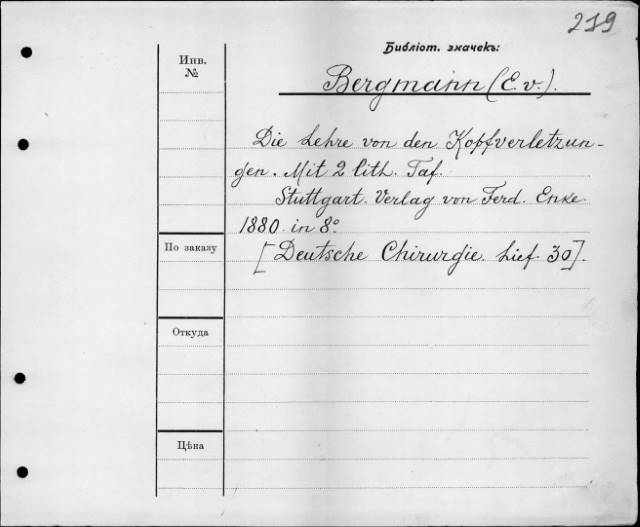 219
Библіот. значекъ:
Инв.
№
Bergmann (E. v.).
Die Lehre von den Kopfverletzun-
gen. Mit 2 lith. Taf.
Stuttgart. Verlag von Ferd. Enke.
1880. in 8°
По заказу
[Deutsche Chirurgie. Lief. 30].
Откуда
Цѣна